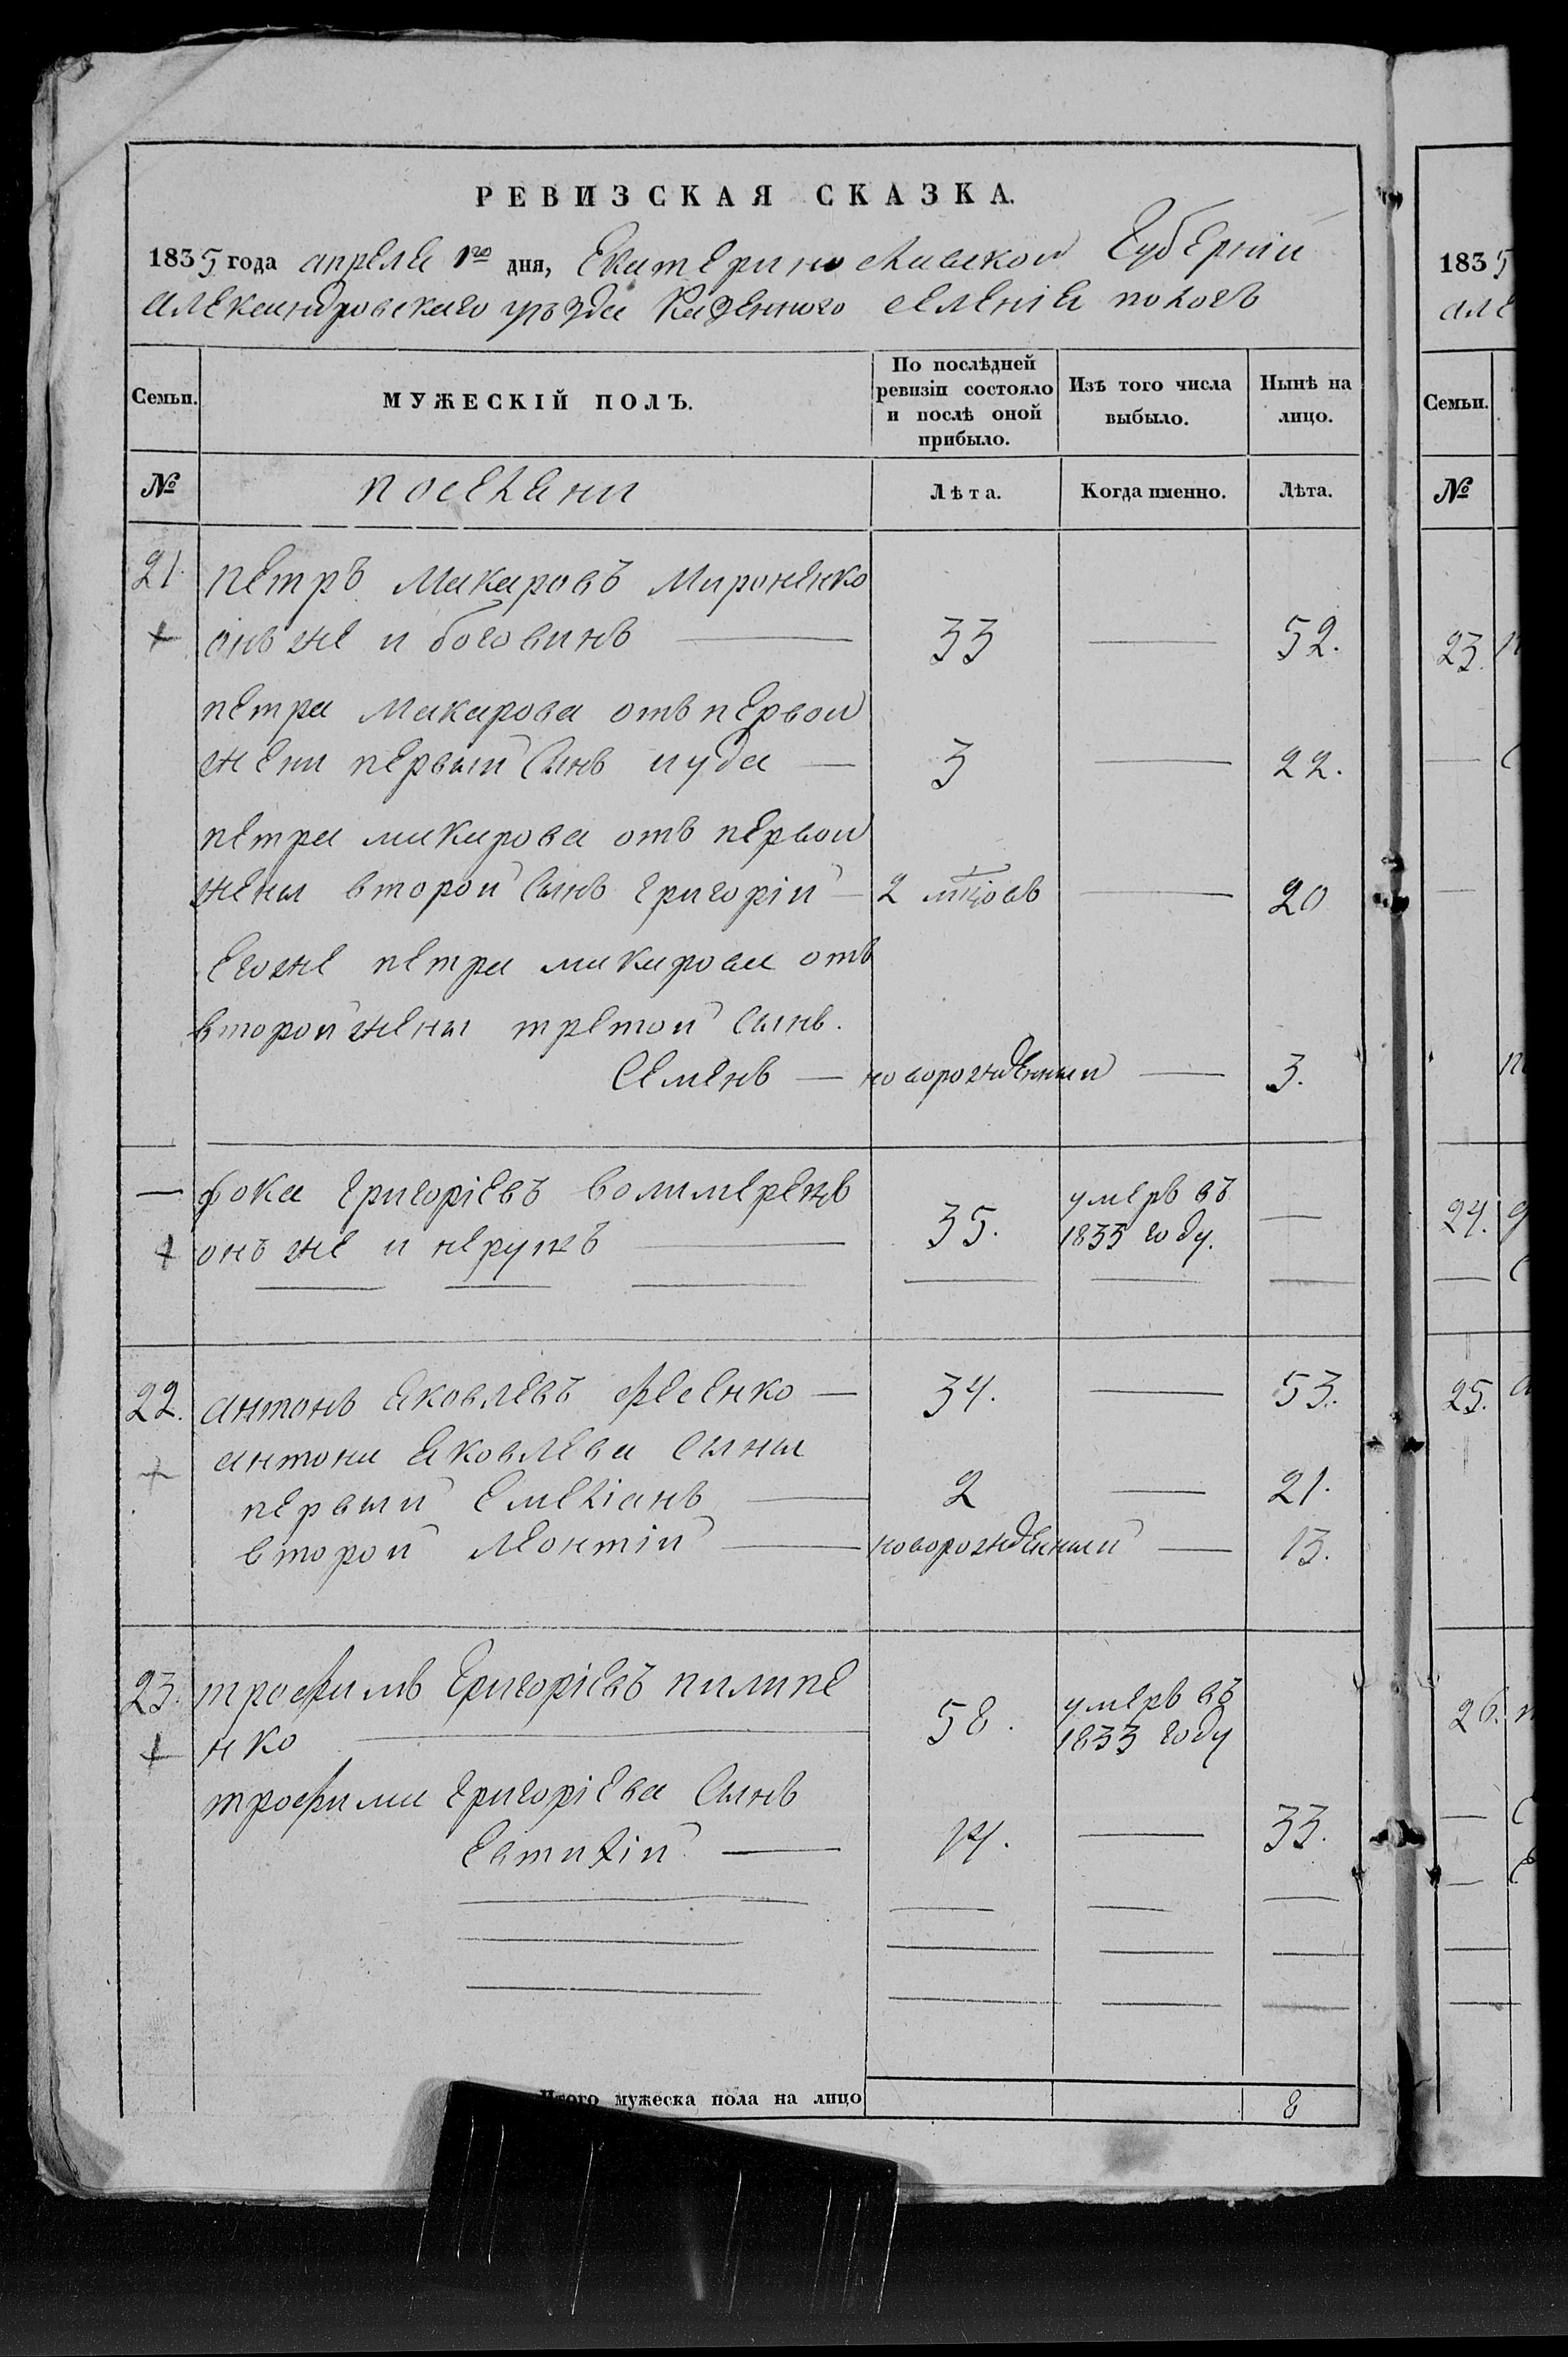 РЕВИЗСКАЯ СКАЗКА.
1835 года апреля 1го дня, Екатеринославской Губерніи
александровскаго уѣзда Казенного селенія пологъ
Семьи.
МУЖЕСКІЙ ПОЛЪ.
По послѣдней ревизіи состояло и послѣ оной прибыло.
Изъ того числа выбыло.
Нынѣ на лицо.
№
поселяни
Лѣта.
Когда именно.
Лѣта.
21. петръ Макаровъ Мироненко
+ онъ же и боговинъ — 33 — 52.
петра Макарова отъ первой
жени первый Сынъ иуда — 3 — 22.
петра макарова отъ первой
жены второй Сынъ григорій — 2 мцовъ — 20
Егоже петра макарова отъ
второй жены третой Сынъ.
Семенъ — новорожденный — 3.
— фока григоріевъ умеръ въ
+ онъ же и 35. 1833 году. —
22. антонъ яковлевъ фесенко — 34. — 53.
+ антона яковлева Сыны
первый Емеліанъ — 2 — 21.
второй Леонтій — новорожденный — 13.
23. трофимъ Григоріевъ пилипе умеръ въ
+ нко — 58. 1833 году
трофима григоріева Сынъ
Евтихій — 14. — 33.
Итого мужеска пола на лицо 8
1835
але
Семьи.
№
23.
24.
25.
26.